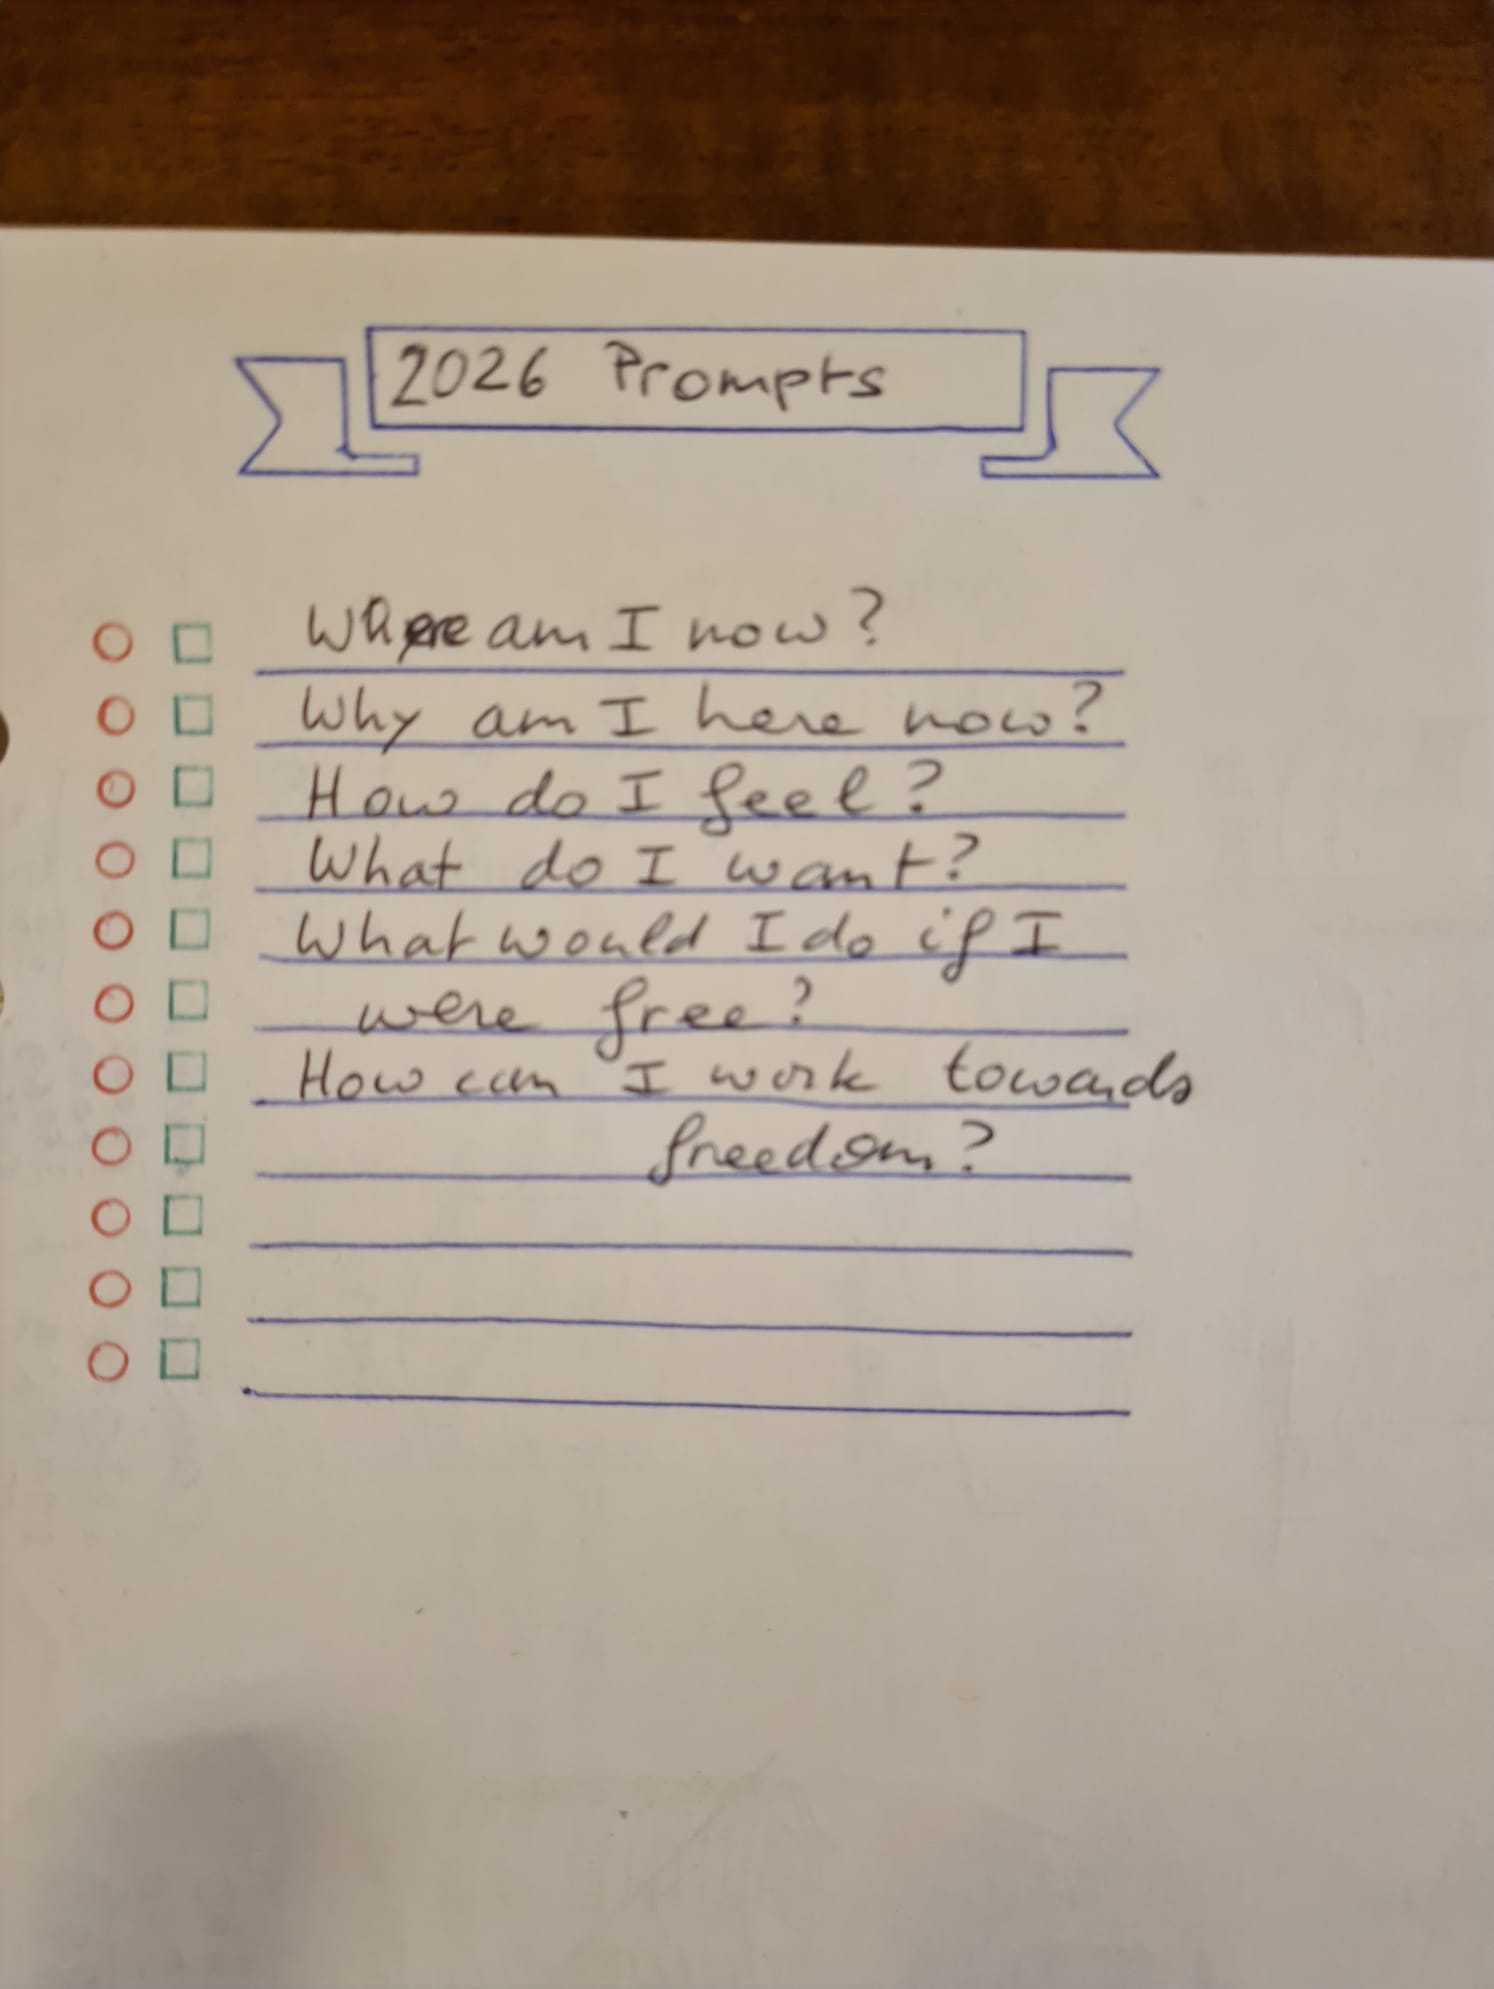 2026 Prompts
Where am I now?
Why am I here now?
How do I feel?
What do I want?
What would I do if I
were free?
How can I work towards
freedom?